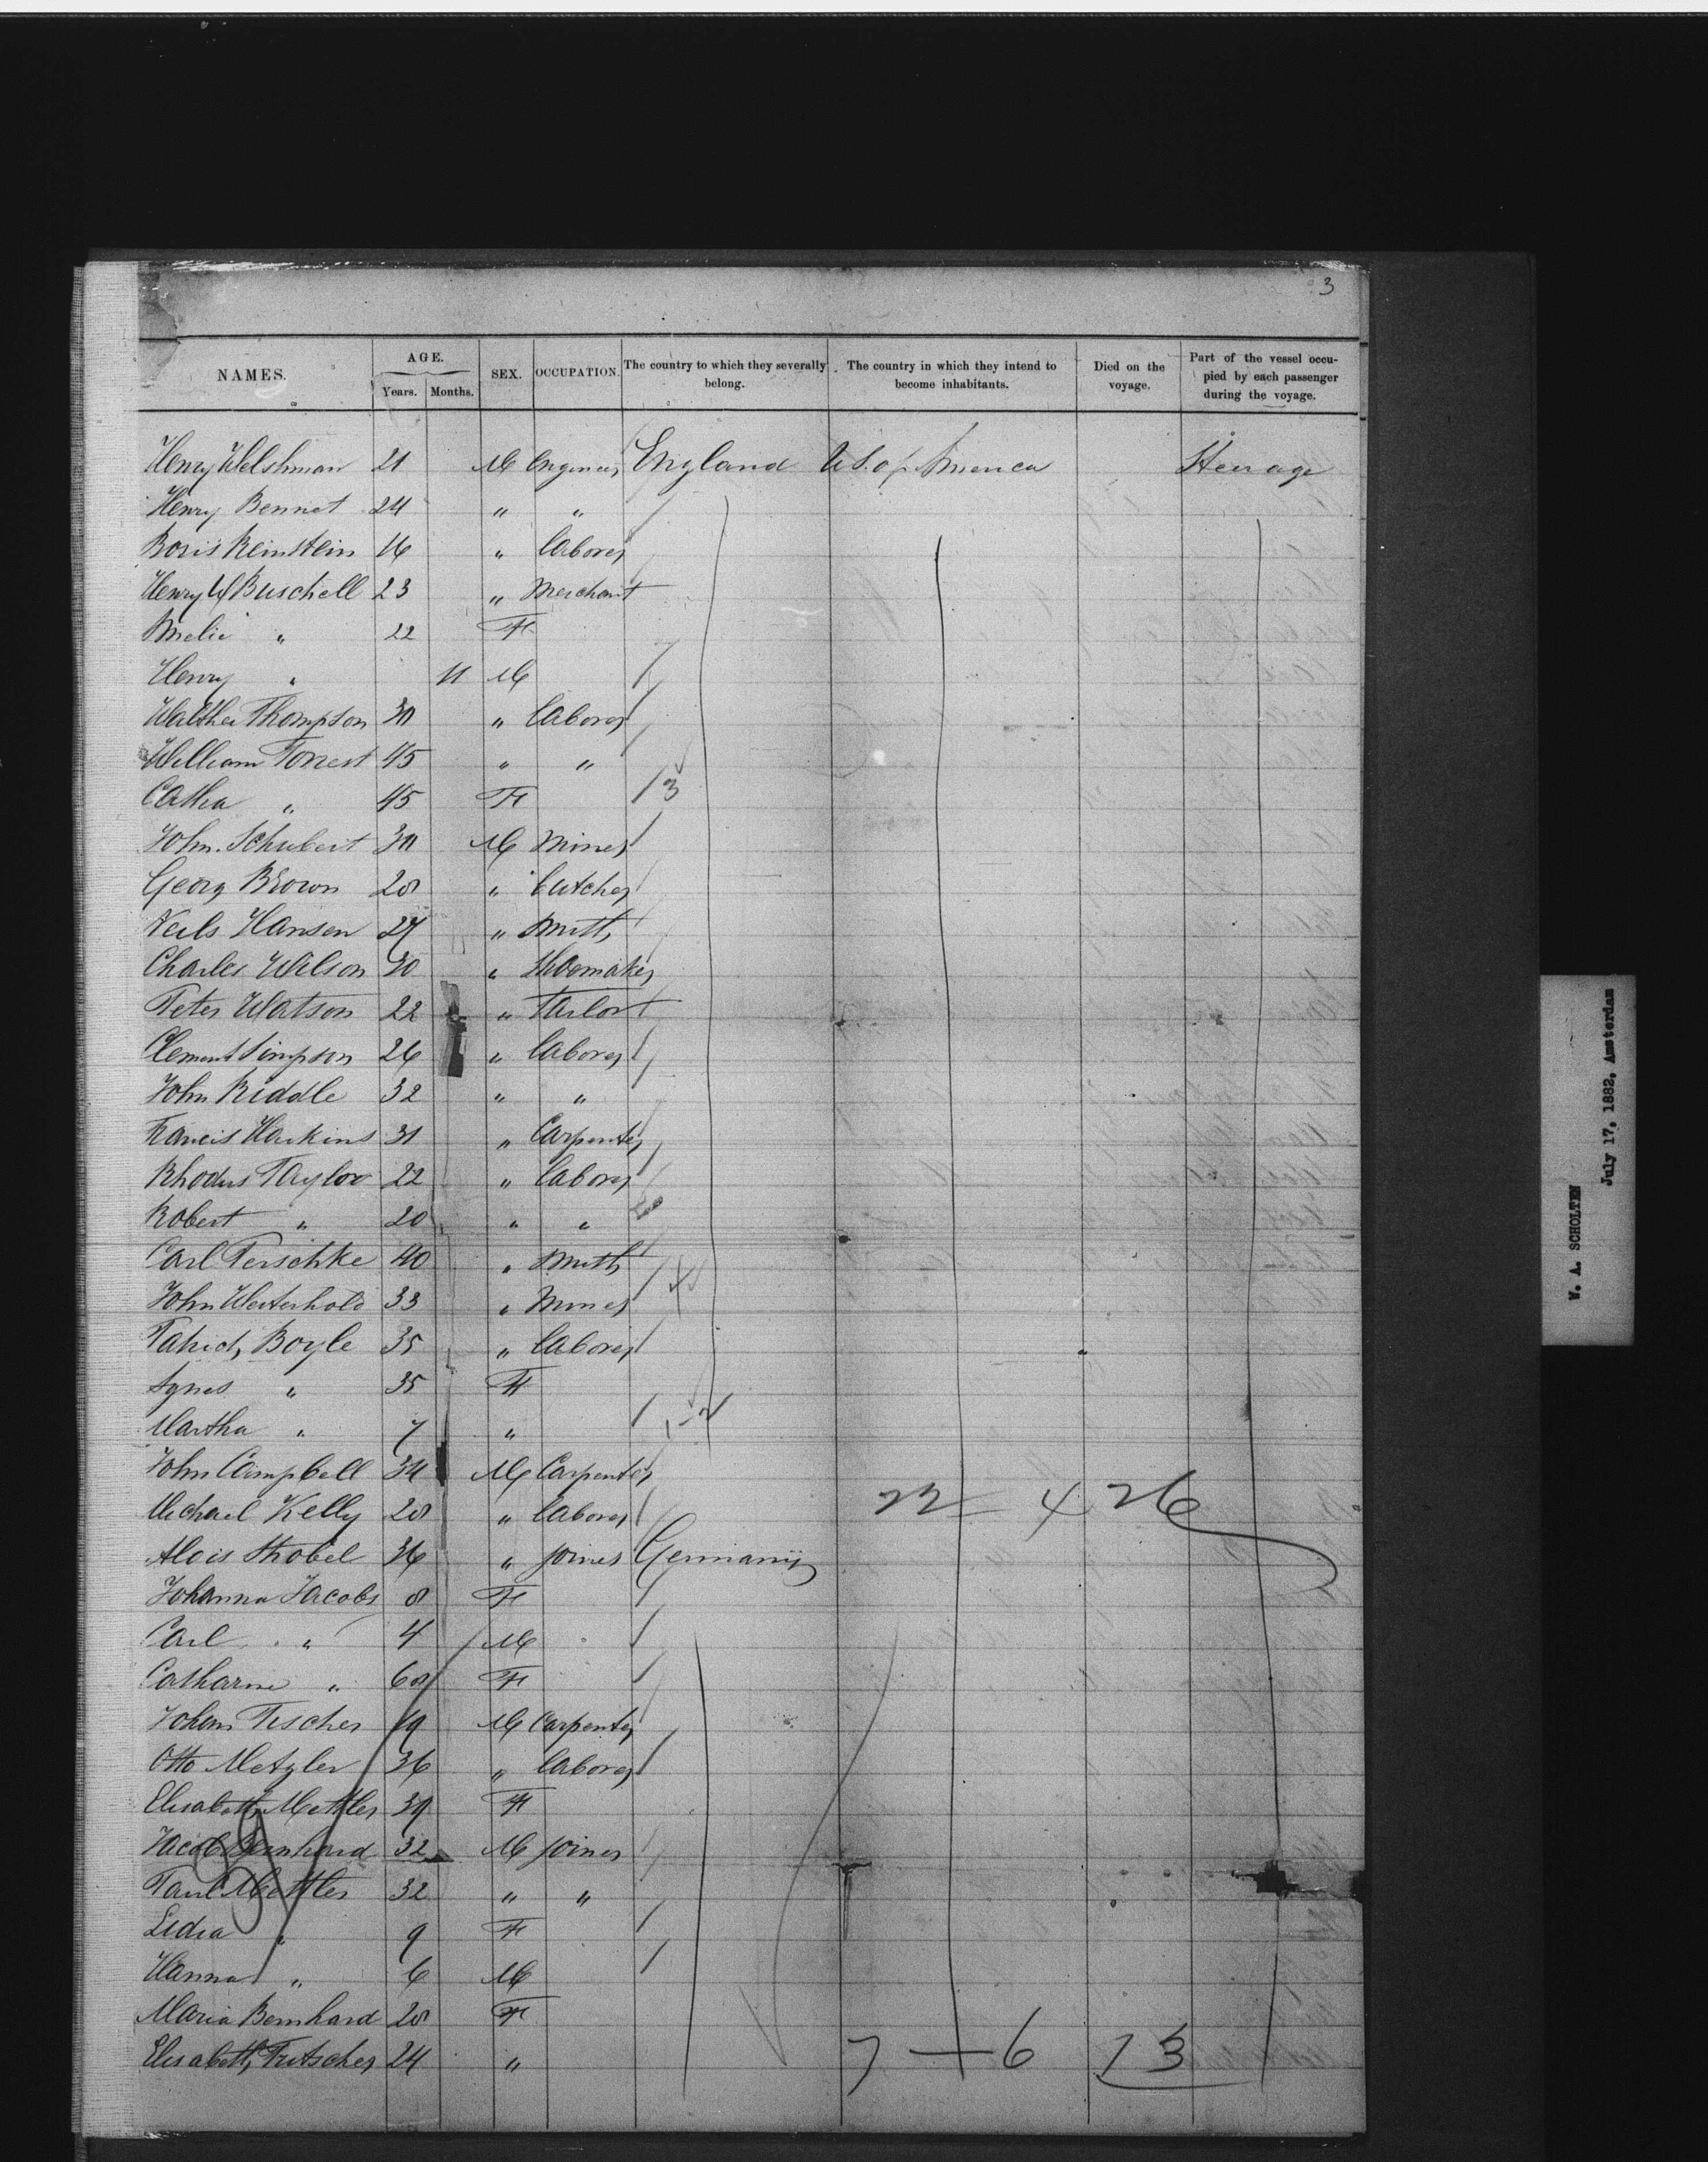 3
NAMES. AGE. Years. Months. SEX. OCCUPATION. The country to which they severally belong. The country in which they intend to become inhabitants. Died on the voyage. Part of the vessel occupied by each passenger during the voyage.
Henry Welshman 21 M Engineer England U.S. of America Steerage
Henry Bennet 24 " "
Boris Reinstein 16 " labores
Henry W Buschell 23 " Merchant
Amelie " 22 F
Henry " 11 M
Walther Thompson 30 " labores
William Forrest 45 " "
Catha " 45 F 13
John Schubert 30 M Miner
Georg Brown 28 " butcher
Neils Hansen 27 " Smith
Charles Wilson 30 " Shoemaker
Peter Watson 22 " Tailor
Clement Simpson 26 " labores
John Riddle 32 " "
Francis Harkins 31 " Carpenter
Rhodus Taylor 22 " labores
Robert " 20 " "
Carl Perschke 40 " Smith
John Westerhold 33 " Miner
Patrick Boyle 35 " labores
Agnes " 35 F
Martha " 7 "
John Campbell 34 M Carpenter
Michael Kelly 28 " labores 22 4 26
Alois Strobel 36 " joiner Germany
Johanna Jacobs 8 F
Carl " 4 M
Catharine " 60 F
Johann Fischer 19 M Carpenter
Otto Metzler 36 " labores
Elisabeth Mettler 39 F
Jacob Bernhard 32 M joiner
Paul Mettler 32 " "
Lidia " 9 F
Hanna " 6 M
Maria Bernhard 28 F
Elisabeth Fritscher 24 " 7 + 6 13
W. A. SCHOLTEN
July 17, 1882, Amsterdam